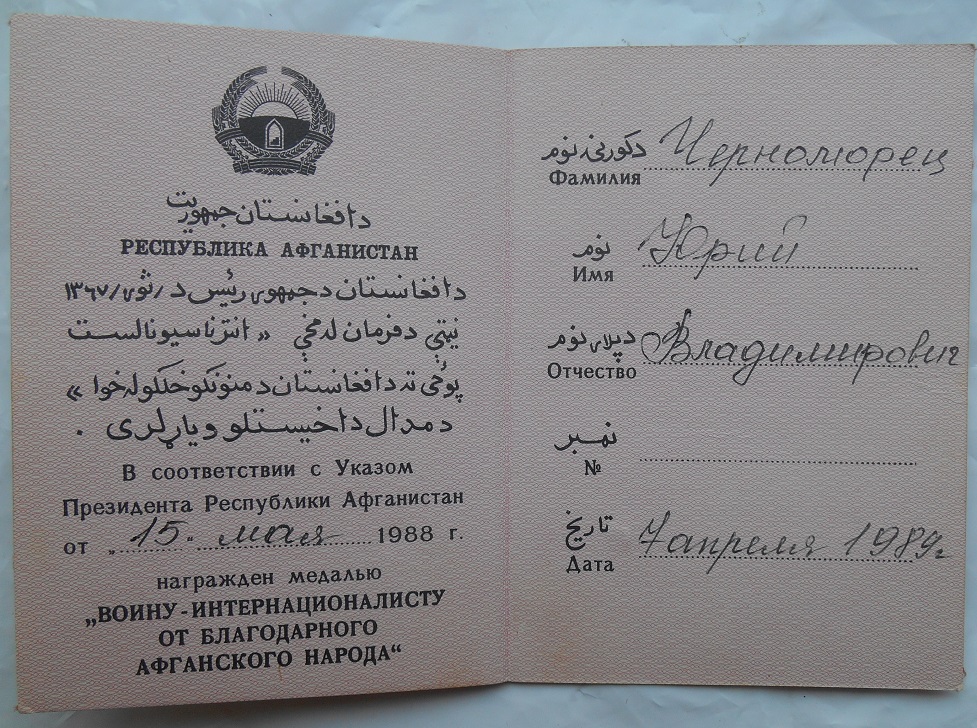 دافغانستان جمهوریت
РЕСПУБЛИКА АФГАНИСТАН
دافغانستان دجمهوری رئیس د /ثور/ ۱۳۶۷
نیټې دفرمان له مخې « انترناسیونالست
پوځي ته دافغانستان دمنونکوخلکولخوا »
دمدال داخیستلو ویاړلری .
В соответствии с Указом
Президента Республики Афганистан
от „ 15 “ мая 1988 г.
награжден медалью
„ВОИНУ-ИНТЕРНАЦИОНАЛИСТУ
ОТ БЛАГОДАРНОГО
АФГАНСКОГО НАРОДА“
دکورنۍ نوم Черноморец
Фамилия
نوم Юрий
Имя
دپلار نوم Владимирович
Отчество
نمبر
№
تاریخ 7 апреля 1989г
Дата